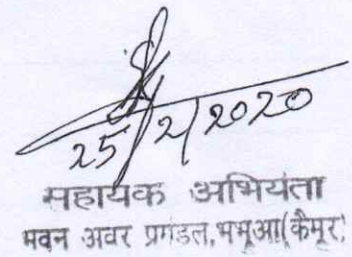 25/2/2020
सहायक अभियंता
भवन अवर प्रमंडल, भभुआ(कैमूर)